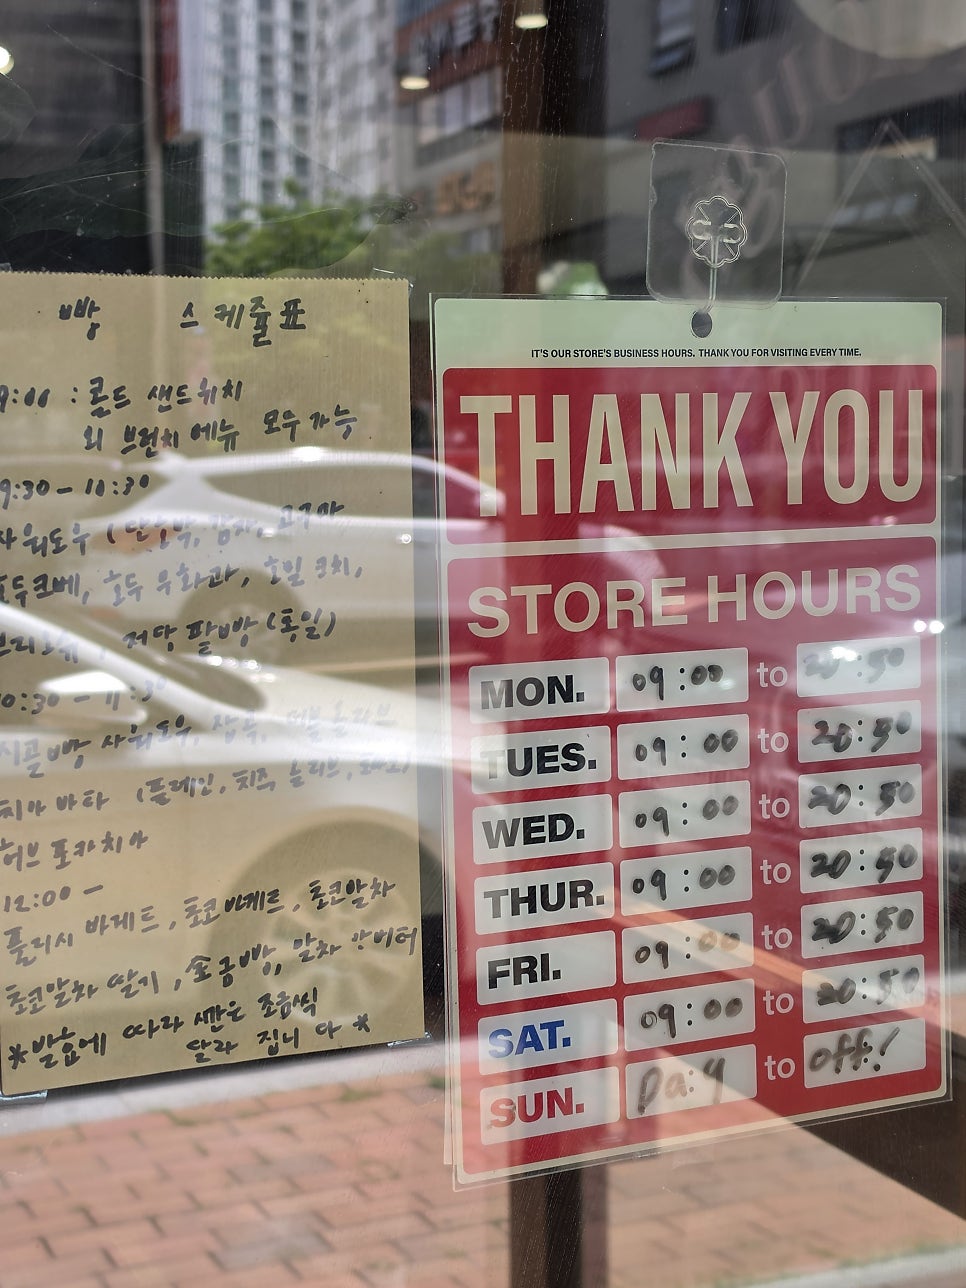 빵 스케쥴표
9:00 : 콜드 샌드위치
외 브런치 메뉴 모두 가능
9:30 - 10:30
사워도우 (단호박, 감자, 고구마
호두크베, 호두 무화과, 호밀
, 저당 팥빵 (통밀)
10:30 - 11:30
시골빵 사워도우, 잡곡, 올리브
치아바타 (플레인, 치즈, 올리브,
허브 포카치아
12:00 -
플러시 바게트, 초코 바게트, 초코말차
초코말차 딸기, 소금빵, 말차 앙버터
*발효에 따라 시간은 조금씩
달라 집니다 *
IT'S OUR STORE'S BUSINESS HOURS. THANK YOU FOR VISITING EVERY TIME.
THANK YOU
STORE HOURS
MON. 09:00 to 20:50
TUES. 09:00 to 20:50
WED. 09:00 to 20:50
THUR. 09:00 to 20:50
FRI. 09:00 to 20:50
SAT. 09:00 to 20:50
SUN. Day to off!